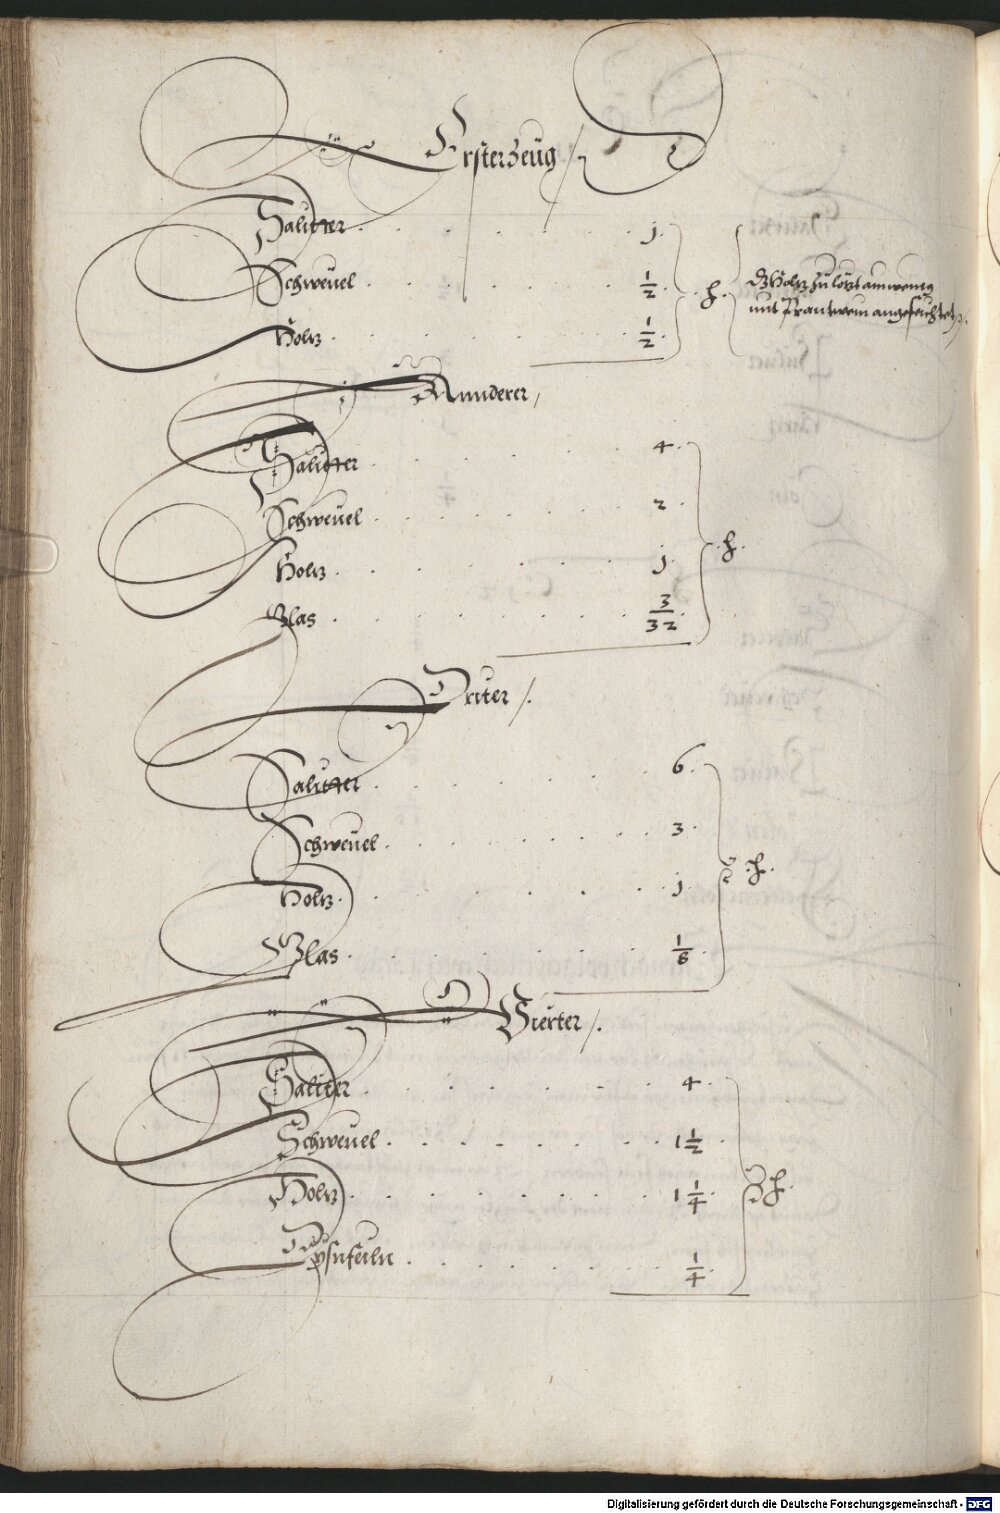 Ersterzeug /
Salitter . . . . j .
Schweuel . . . . 1/2 .
Holtz . . . . 1/2 .
. h .
dz Holtz zu lötzt ain wenig
mit Prantwein angefeüchtet /.
Annderer /
Salitter . . . . 4 .
Schweuel . . . . 2 .
Holtz . . . . j .
Glas . . . . 3/32 .
. h .
Driter /.
Salitter . . . . 6 .
Schweuel . . . . 3 .
Holtz . . . . j .
Glas . . . . 1/8 .
. h .
Vierter /.
Saliter . . . . 4 .
Schweuel . . . . 1 1/2 .
Holtz . . . . 1 1/4 .
Eysnfeiln . . . . 1/4 .
h .
Digitalisierung gefördert durch die Deutsche Forschungsgemeinschaft - DFG